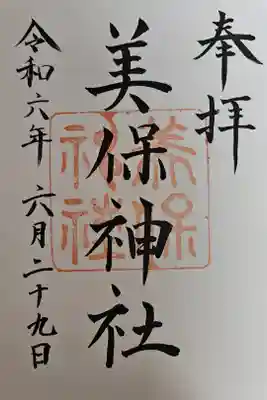 奉拝
美保神社
美保
神社
令和六年 六月二十九日